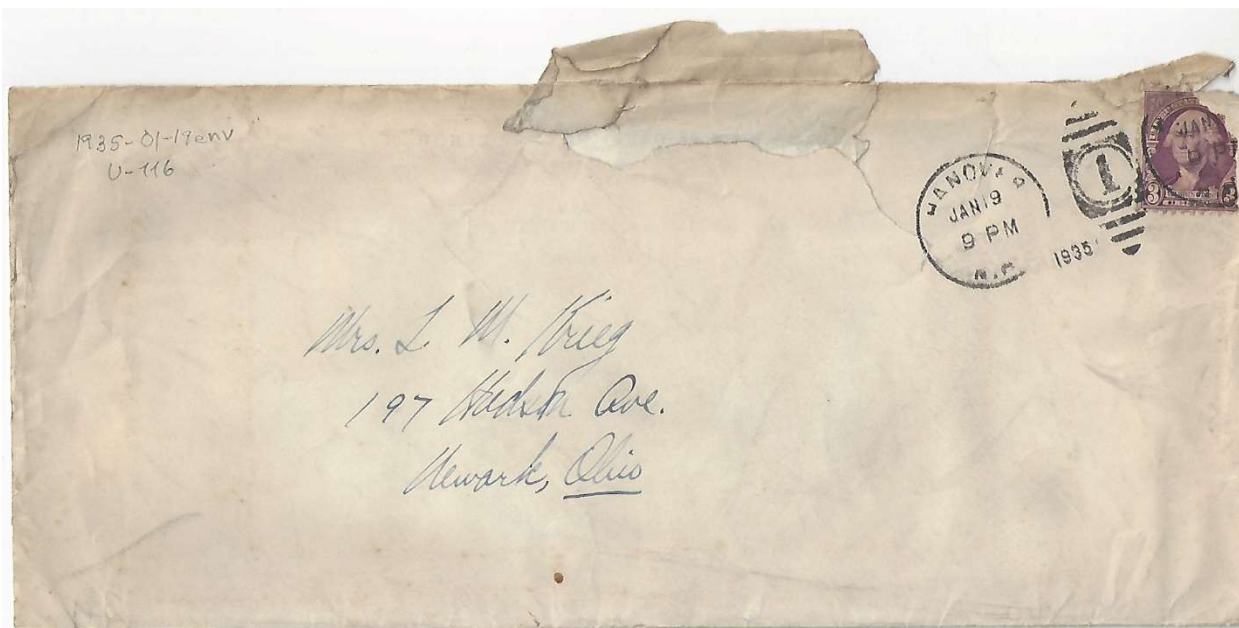 1935-01-19env
U-116
HANOVER
JAN 19
9 PM
N.H.
1935
1
JAN
3
Mrs. L. M. Krieg
197 Hudson Ave.
Newark, Ohio